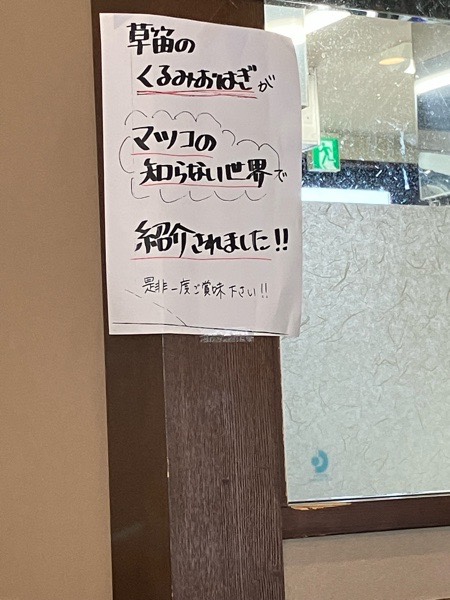 草笛の
くるみおはぎが
マツコの
知らない世界で
紹介されました!!
是非一度ご賞味下さい!!